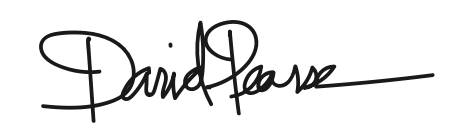 David Pearse